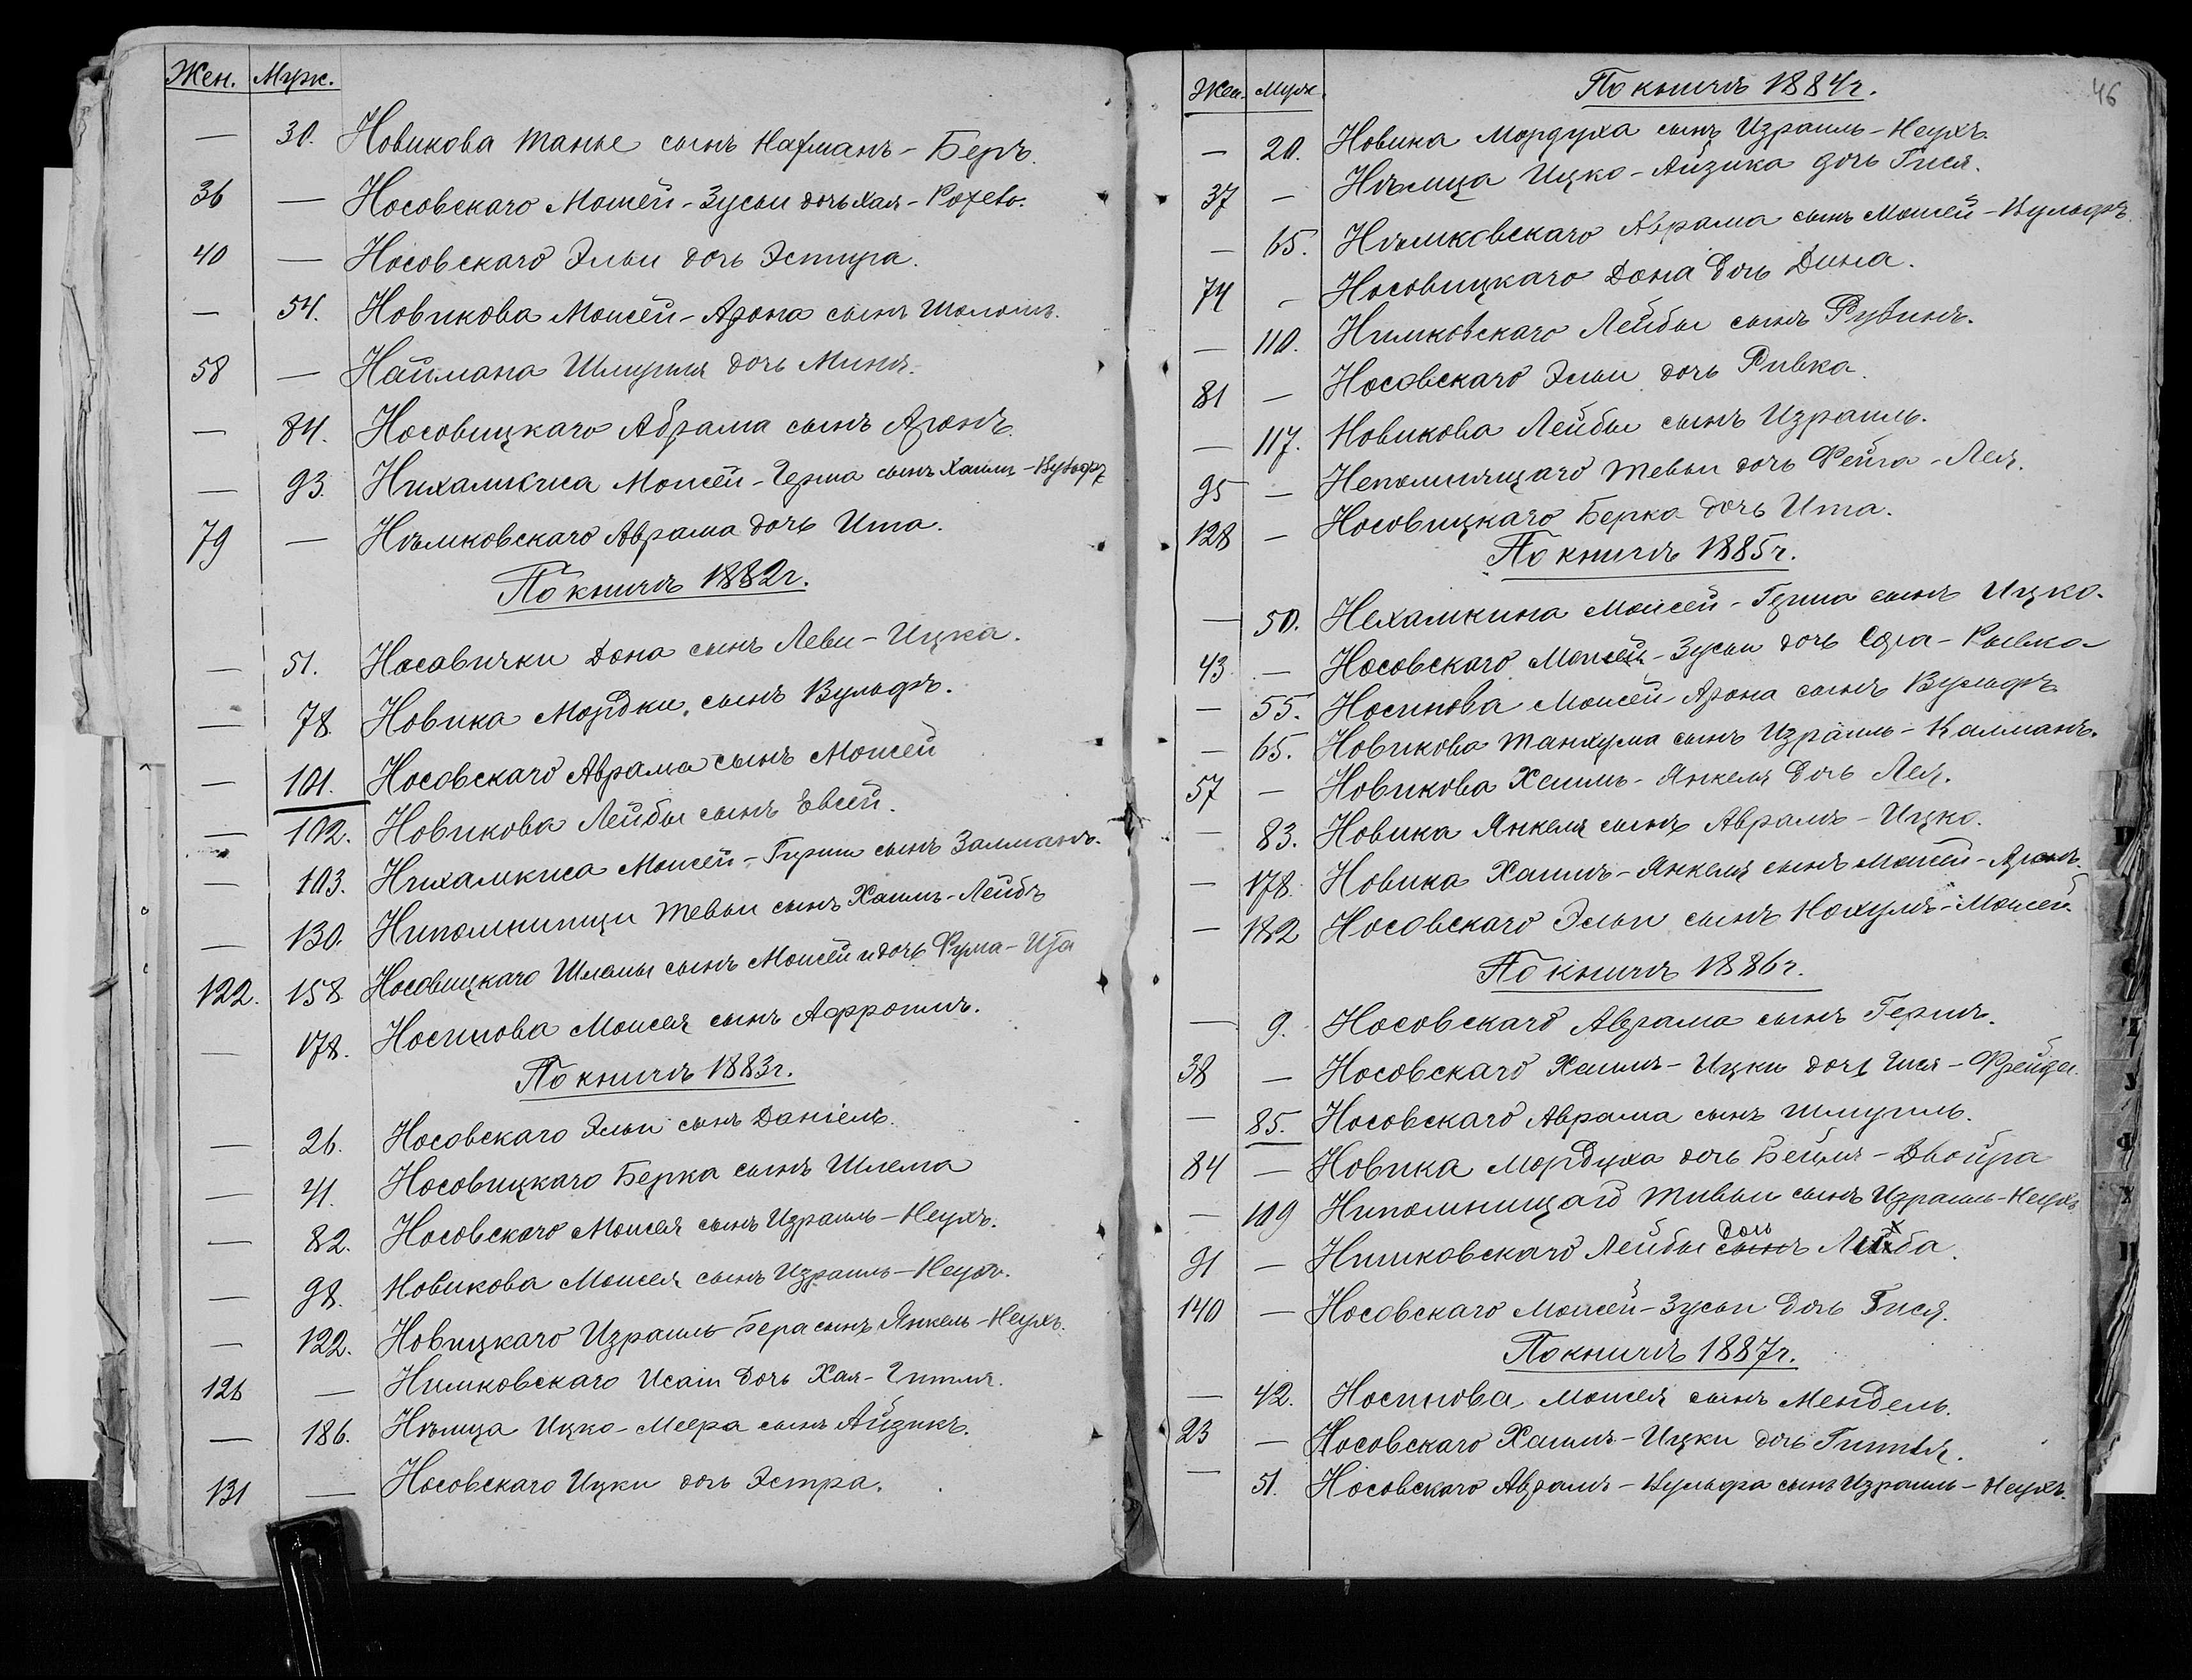 Жен. Муж.
— 30. Новикова Танье сынъ Нахманъ-Беръ.
36 — Носовскаго Мошей-Зусьи дочь Хая-Рохель.
40 — Носовскаго Эльи дочь Эстира.
— 54. Новикова Моисей-Арона сынъ Шоломъ.
58 — Наймана Шмуиля дочь Миня.
— 84. Носовицкаго Абрама сынъ Аронъ.
— 93. Нихамкиса Моисей-Герша сынъ Хаимъ-Вульфъ
79 — Нѣмковскаго Аврама дочь Ита.
По книгѣ 1882г.
— 51. Носавички Дона сынъ Леви-Ицка.
— 78. Новика Мордки, сынъ Вульфъ.
— 101. Носовскаго Аврама сынъ Мошей
— 102. Новикова Лейбы сынъ Евсей.
— 103. Нихамкиса Моисей-Гирши сынъ Залманъ.
— 130. Нипомнищи Тевьи сынъ Хаимъ-Лейбъ
122. 158. Носовицкаго Шлемы сынъ Моисей и дочь Фума-Ита
— 178. Носинова Моисея сынъ Афроимъ.
По книгѣ 1883г.
— 26. Носовскаго Эльи сынъ Даніелъ.
— 41. Носовицкаго Берка сынъ Шлема
— 82. Носовскаго Моисея сынъ Израиль-Неухъ.
— 98. Новикова Моисея сынъ Израиль-Неухъ.
— 122. Новицкаго Израиль-Бера сынъ Янкель-Неухъ.
126 — Нимковскаго Исаіи дочь Хая-Гитля.
— 186. Нѣмца Ицко-Меера сынъ Айзикъ.
131 — Носовскаго Ицки дочь Эстра.
46
Жен. Муж.
По книгѣ 1884г.
— 20. Новика Мордуха сынъ Израиль-Неухъ.
37 — Нѣмца Ицко-Айзика дочь Гися.
— 65. Нѣмковскаго Аврама сынъ Моисей-Вульфъ
74 — Носовицкаго Дона дочь Дина.
— 110. Нимковскаго Лейбы сынъ Рувинъ.
81 — Носовскаго Эльи дочь Ривка.
— 117. Новикова Лейбы сынъ Израиль.
95 — Непомнящаго Тевьи дочь Фейга-Лея.
128 — Носовицкаго Берка дочь Ита.
По книгѣ 1885г.
— 50. Нехамкина Моисей-Герша сынъ Ицко.
43 — Носовскаго Моисей-Зусьи дочь Сора-Рывка
— 55. Носинова Моисей-Арона сынъ Вульфъ
— 65. Новикова Танхума сынъ Израиль-Калманъ.
57 — Новикова Хаимъ-Янкеля дочь Лея.
— 83. Новика Янкеля сынъ Аврамъ-Ицко.
— 178. Новика Хаимъ-Янкеля сынъ Моисей-Аронъ.
— 182 Носовскаго Эльи сынъ Нохумъ-Моисей.
По книгѣ 1886г.
— 9. Носовскаго Аврама сынъ Гершъ.
38 — Носовскаго Хаимъ-Ицки дочь Гися-Фрейда.
— 85. Носовскаго Аврама сынъ Шмуиль.
84 — Новика Мордуха дочь Бейля-Двойра
— 109 Нипомнищаго Тивьи сынъ Израиль-Неухъ
дочь
91 — Нимковскаго Лейбы сынъ Либа.
140 — Носовскаго Моисей-Зусьи дочь Гися.
По книгѣ 1887г.
— 42. Носинова Моисея сынъ Мендель.
23 — Носовскаго Хаимъ-Ицки дочь Гитля.
— 51. Носовскаго Аврамъ-Вульфа сынъ Израиль-Неухъ.
У
Ф
Х